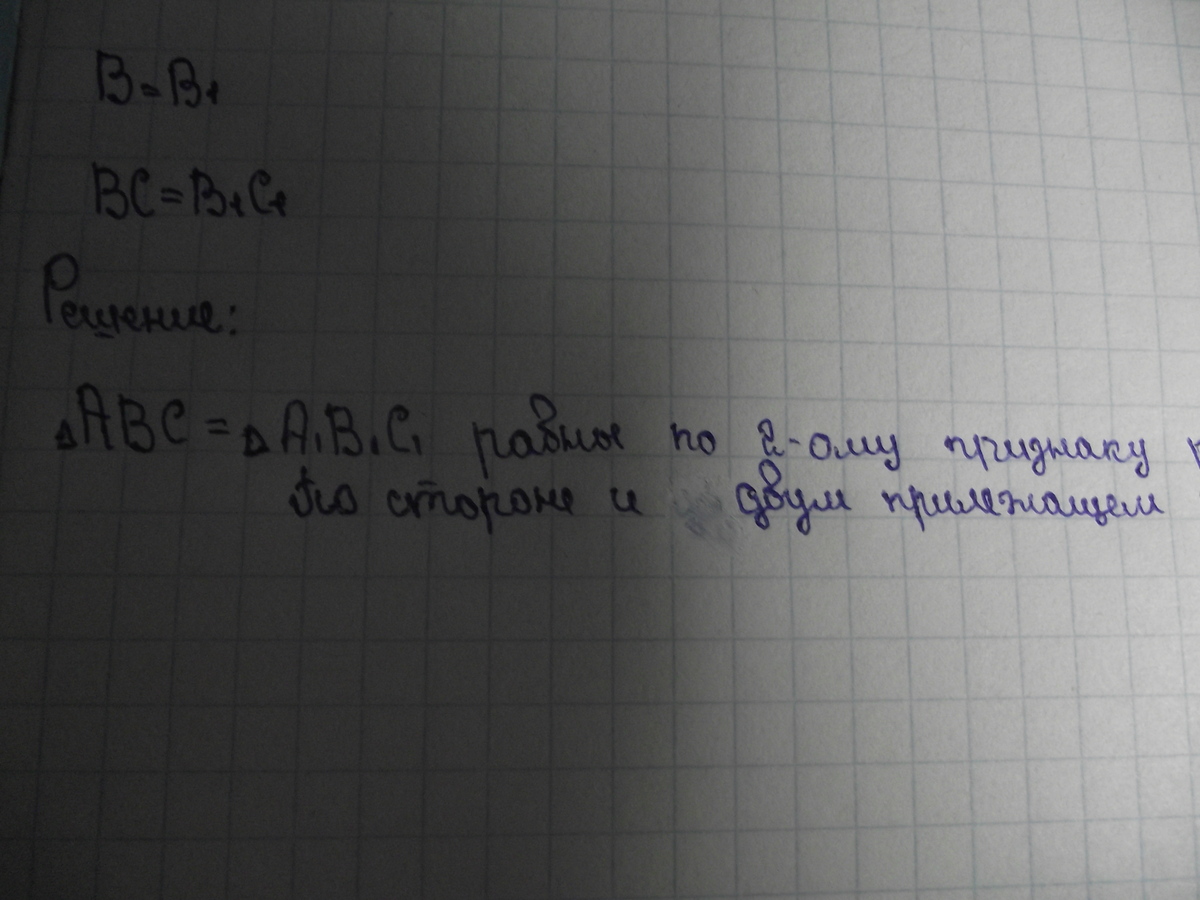 B=B₁
BC=B₁C₁
Решение:
△ABC=△A₁B₁C₁ равны по 2-ому признаку
по стороне и двум прилежащем